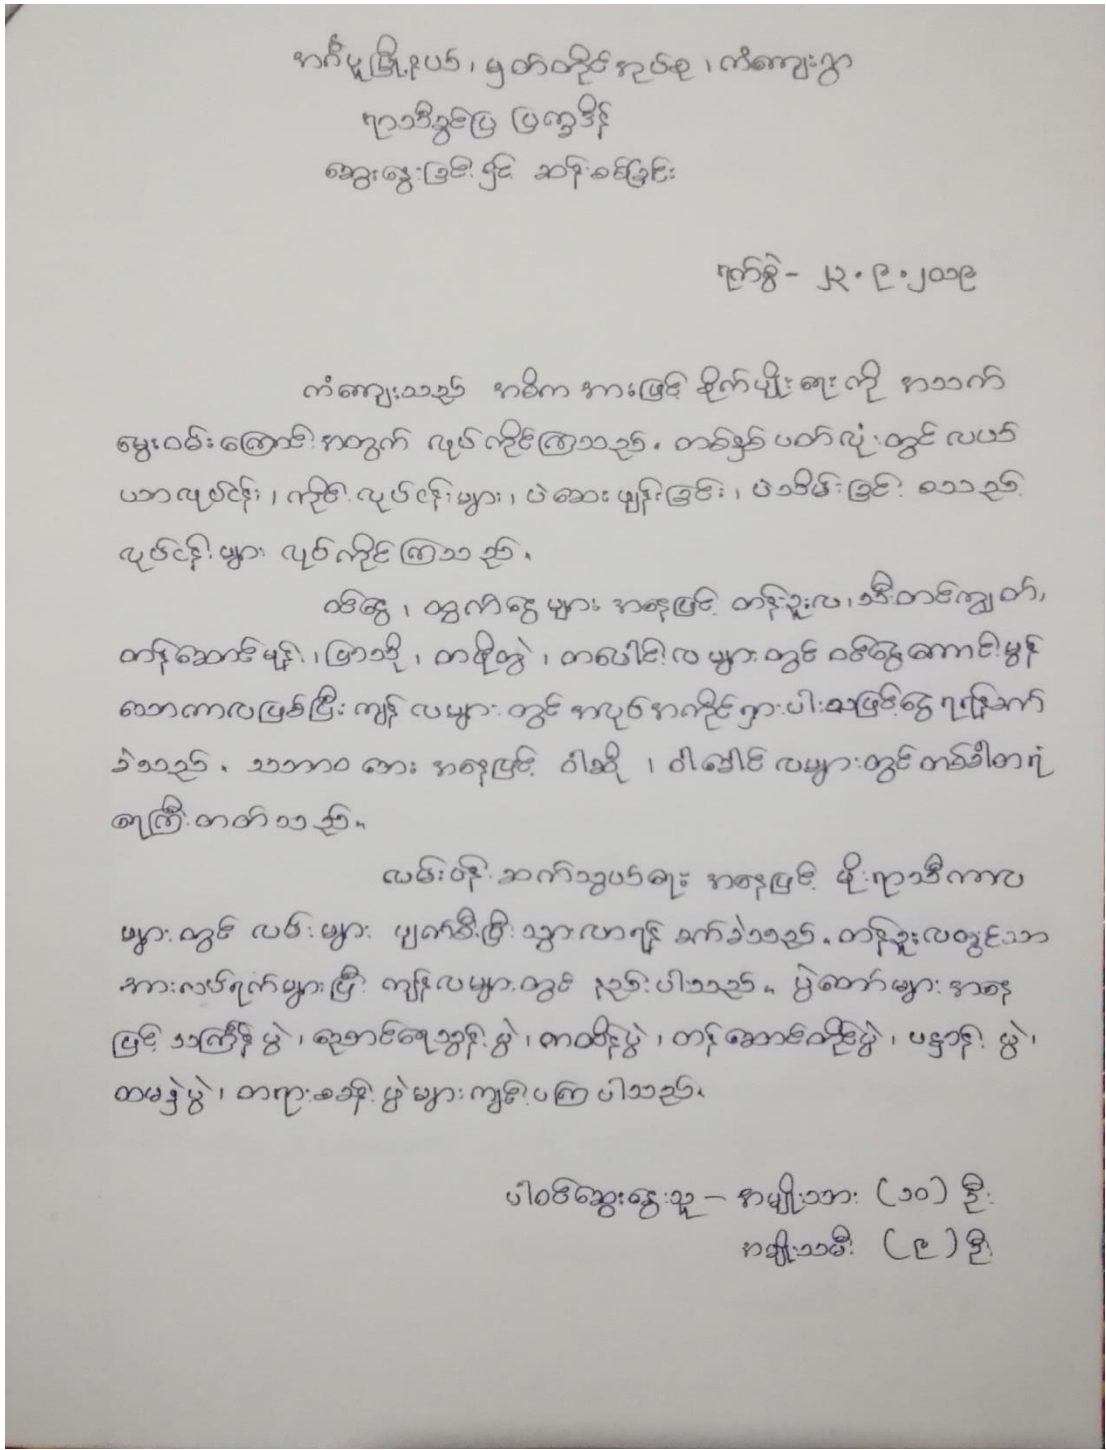 အင်္ဂပူမြို့နယ်၊ မှတ်တိုင်အုပ်စု၊ ကံကျေးရွာ
ရာသီခွင်ပြ ပြက္ခဒိန်
ဆွေးနွေးခြင်းနှင့် ဆန်းစစ်ခြင်း
ရက်စွဲ - ၂၃.၉.၂၀၁၉
အဓိက အားဖြင့် စိုက်ပျိုးရေးကို အသက်
မွေးဝမ်းကြောင်းအတွက် လုပ်ကိုင်ကြသည်. တစ်နှစ်ပတ်လုံးတွင် လယ်
ယာလုပ်ငန်း၊ ကိုင်းလုပ်ငန်းများ၊ ပဲဆေးဖျန်းခြင်း၊ ပဲသိမ်းခြင်း စသည့်
လုပ်ငန်းများ လုပ်ကိုင်ကြသည်.
ဝင်ငွေ၊ ထွက်ငွေများ အနေဖြင့် တန်ခူးလ၊ သီတင်းကျွတ်၊
တန်ဆောင်မုန်း၊ ပြာသို၊ တပို့တွဲ၊ တပေါင်းလများတွင် ဝင်ငွေကောင်းမွန်
သောကာလဖြစ်ပြီး ကျန်လများတွင် အလုပ်အကိုင်ရှားပါးသဖြင့်ငွေရရန်ခက်
ခဲသည်. သဘာဝဘေး အနေဖြင့် ဝါဆို၊ ဝါခေါင်လများတွင်တစ်ခါတရံ
ရေကြီးတတ်သည်။
လမ်းပန်းဆက်သွယ်ရေး အနေဖြင့် မိုးရာသီကာလ
များတွင် လမ်းများ ပျက်စီးပြီးသွားလာရန် ခက်ခဲသည်. တန်ခူးလတွင်သာ
အားလပ်ရက်များပြီး ကျန်လများတွင် နည်းပါသည်။ ပွဲတော်များအနေ
ဖြင့် သင်္ကြန်ပွဲ၊ ညောင်ရေသွန်းပွဲ၊ ကထိန်ပွဲ၊ တန်ဆောင်တိုင်ပွဲ၊ ပဋ္ဌာန်းပွဲ၊
ထမနဲပွဲ၊ တရားစခန်းပွဲများကျင်းပကြပါသည်.
ပါဝင်ဆွေးနွေးသူ - အမျိုးသား (၁၀) ဦး
အမျိုးသမီး (၉) ဦး